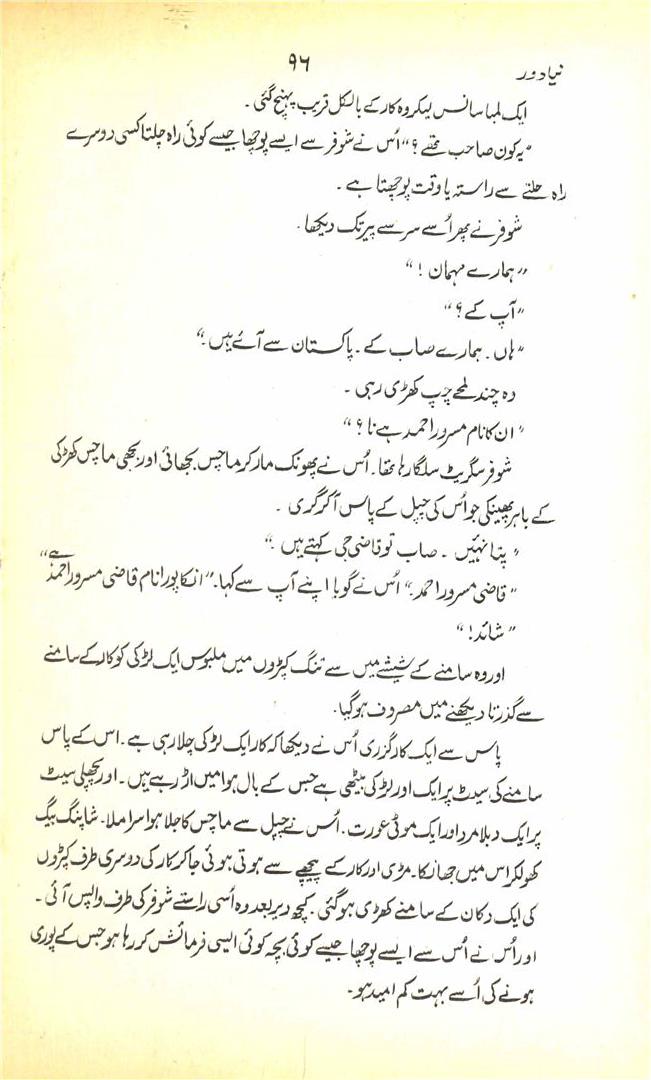 نیا دور
۹۶
ایک لمبا سانس لیکر وہ کار کے بالکل قریب پہنچ گئی ۔
"یہ کون صاحب تھے ؟" اُس نے شوفر سے ایسے پوچھا جیسے کوئی راہ چلتا کسی دوسرے
راہ چلنے سے راستہ یا وقت پوچھتا ہے ۔
شوفر نے پھر اُسے سر سے پیر تک دیکھا ۔
"ہمارے مہمان !"
"آپ کے ؟"
"ہاں ۔ ہمارے صاب کے ۔ پاکستان سے آئے ہیں ۔"
وہ چند لمحے چپ کھڑی رہی ۔
"ان کا نام مسرور احمد ہے نا ؟"
شوفر سگریٹ سلگا رہا تھا ۔ اُس نے پھونک مار کر ماچس بجھائی اور بجھی ماچس کھڑکی
کے باہر پھینکی جو اُس کی چپل کے پاس آکر گری ۔
"پتا نہیں ۔ صاب تو قاضی جی کہتے ہیں ۔"
"قاضی مسرور احمد ۔" اُس نے گویا اپنے آپ سے کہا ۔ "انکا پورا نام قاضی مسرور احمد ہے"
"شائد !"
اور وہ سامنے کے شیشے میں سے تنگ کپڑوں میں ملبوس ایک لڑکی کو کار کے سامنے
سے گذرتا دیکھنے میں مصروف ہوگیا ۔
پاس سے ایک کار گزری اُس نے دیکھا کہ کار ایک لڑکی چلا رہی ہے ۔ اس کے پاس
سامنے کی سیٹ پر ایک اور لڑکی بیٹھی ہے جس کے بال ہوا میں اڑ رہے ہیں ۔ اور پچھلی سیٹ
پر ایک دبلا مرد اور ایک موٹی عورت ۔ اُس نے چپل سے ماچس کا جلا ہوا سرا ملا ۔ شاپنگ بیگ
کھولکر اس میں جھانکا ۔ مڑی اور کار کے پیچھے سے ہوتی ہوئی جاکر کار کی دوسری طرف کپڑوں
کی ایک دکان کے سامنے کھڑی ہوگئی ۔ کچھ دیر بعد وہ اُسی راستے شوفر کی طرف واپس آئی ۔
اور اُس نے اُس سے ایسے پوچھا جیسے کوئی بچہ کوئی ایسی فرمائش کر رہا ہو جس کے پوری
ہونے کی اُسے بہت کم امید ہو ۔